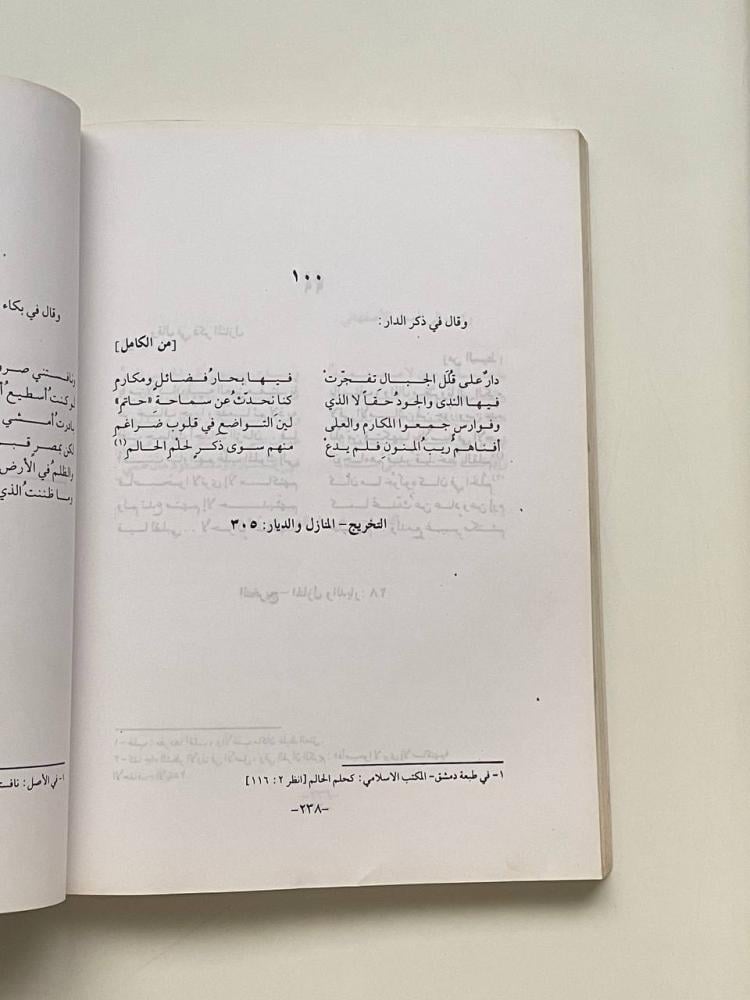 ١٠٠
وقال في ذكر الدار:
[من الكامل]
دارٌ على قُلَل الجبال تفجّرتْ فيها بحارُ فضائل ومكارم
فيها الندى والجودُ حقاً لا الذي كنا نحدّثُ عن سماحة «حاتم»
وفوارس جمعوا المكارم والعلى لينَ التواضع في قلوب ضراغم
أفناهم رَيبُ المنونِ فلم يدعْ منهم سوى ذكرٍ لحلْم الحالم(١)
التخريج- المنازل والديار: ٣٠٥
١- في طبعة دمشق- المكتب الاسلامي: كحلم الحالم [انظر ٢: ١١٦]
-٢٣٨-
وقال في بكاء
لو كنتُ أسطيع
لكن بمصر
والظلم في الأرض
وما ظننتُ الذي
١- في الأصل: